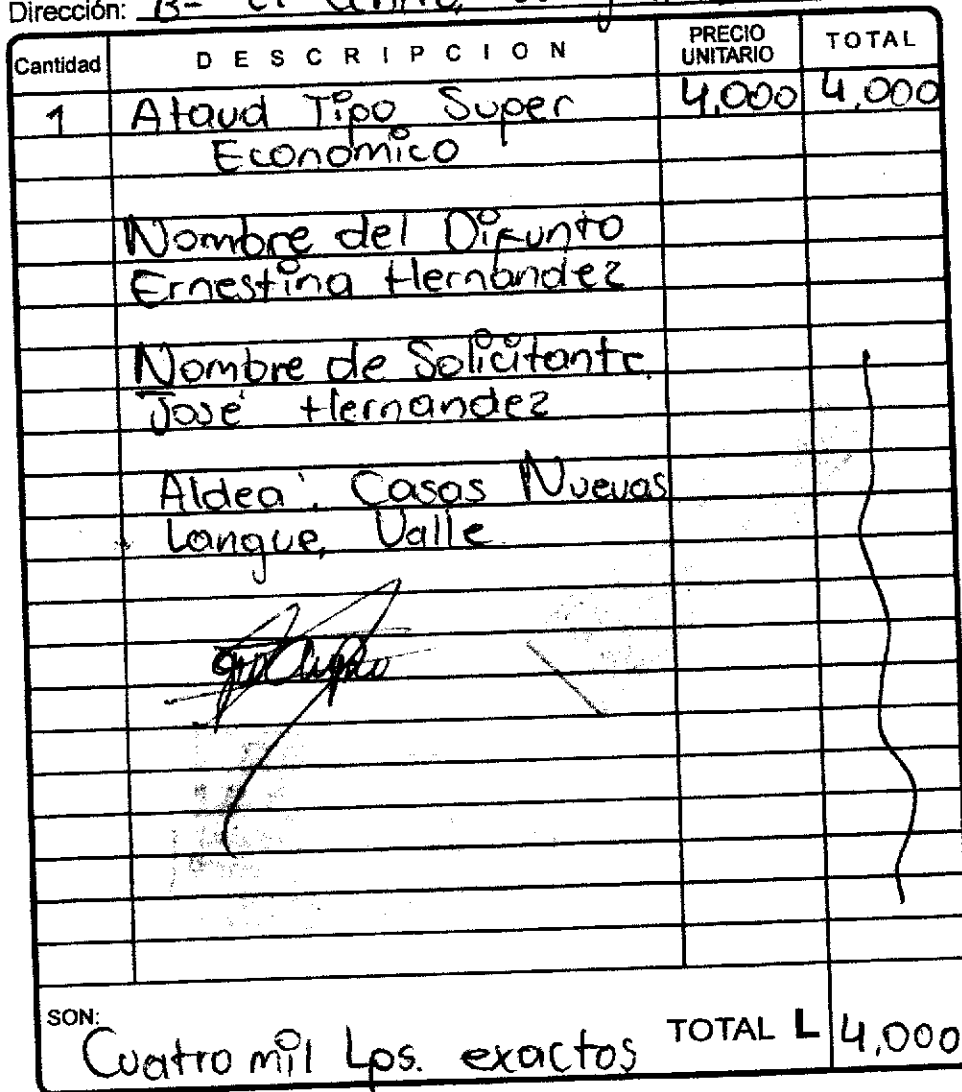 Dirección: B- El Centro,
Cantidad DESCRIPCION PRECIO UNITARIO TOTAL
1 Ataud Tipo Super 4,000 4,000
Economico
Nombre del Difunto
Ernestina Hernandez
Nombre de Solicitante
José Hernandez
Aldea: Casas Nuevas
Langue, Valle
SON: Cuatro mil Lps. exactos TOTAL L 4,000